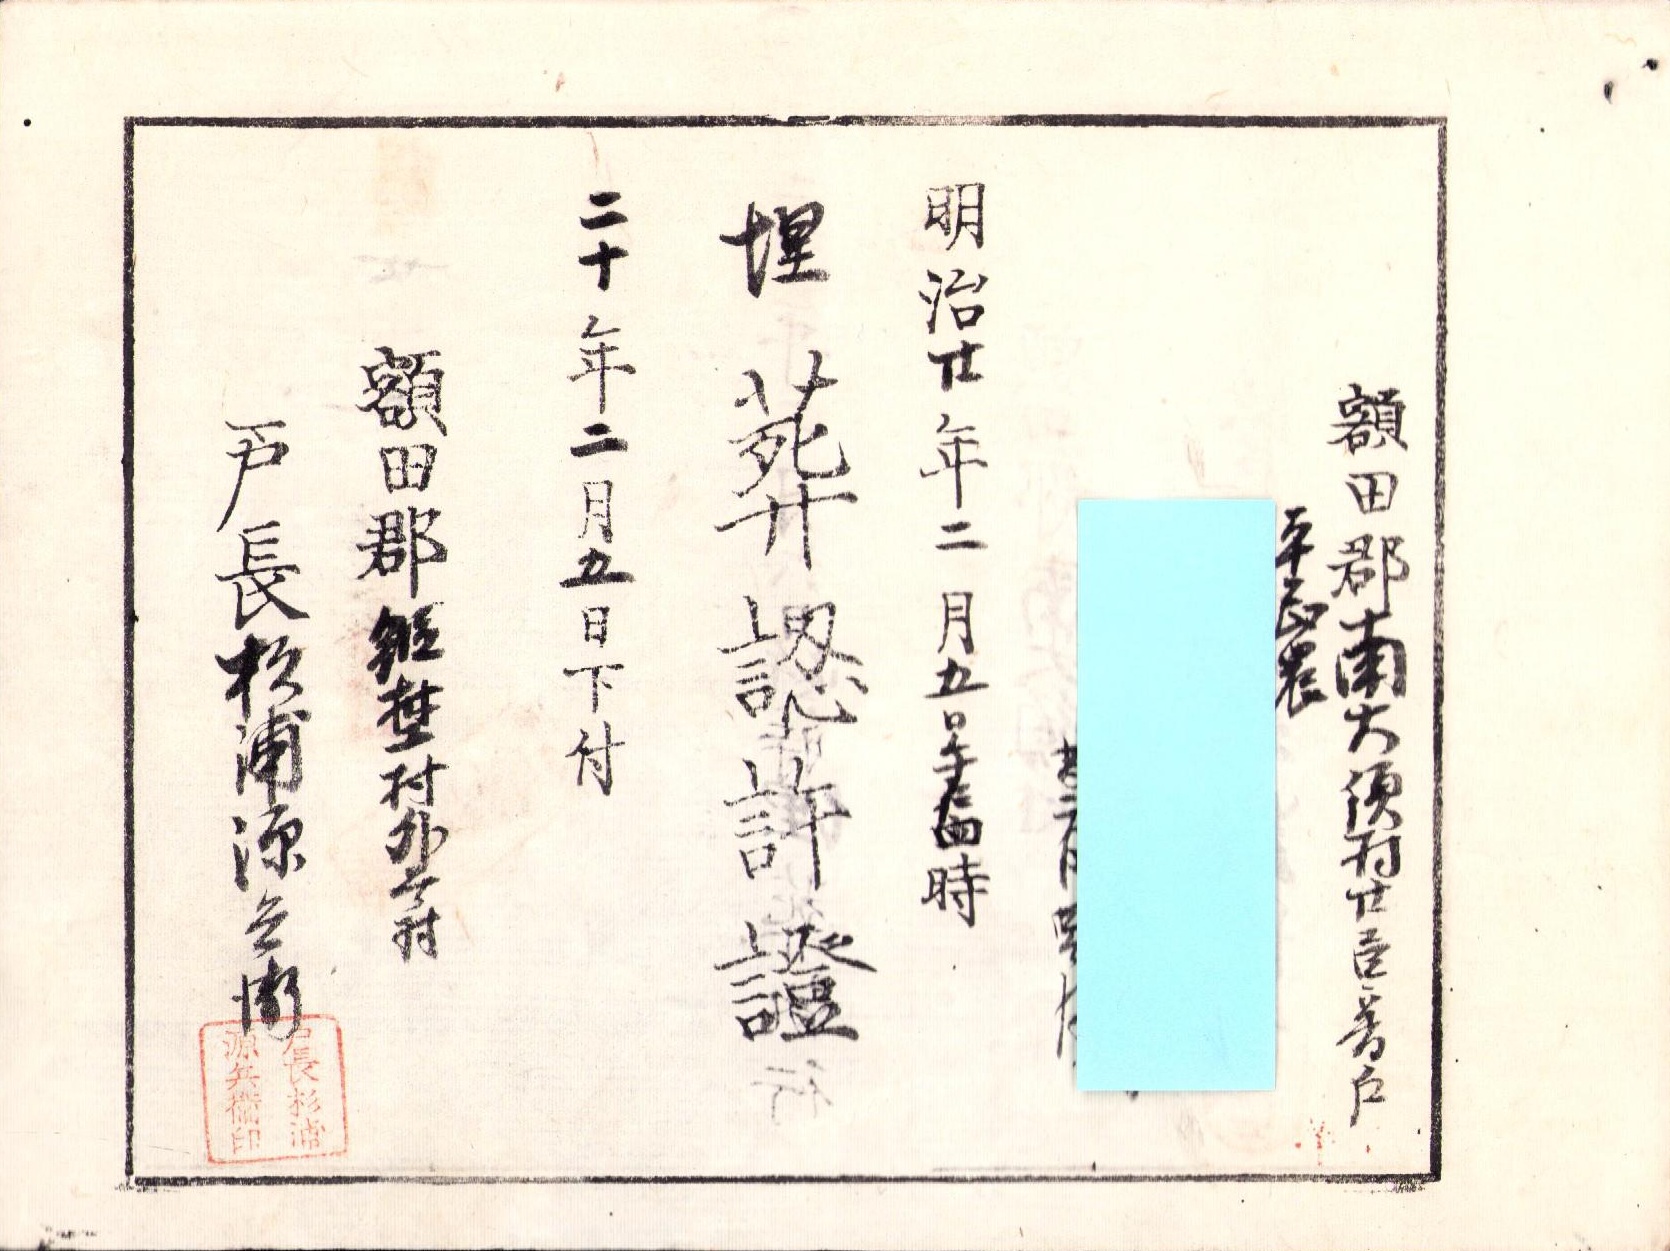 額田郡南大須村廿壱番戸
平民農
明治廿年二月五日午前四時
埋葬認許證
二十年二月五日下付
額田郡
村外
村
戸長杉浦源兵衛
戸長杉浦
源兵衛印